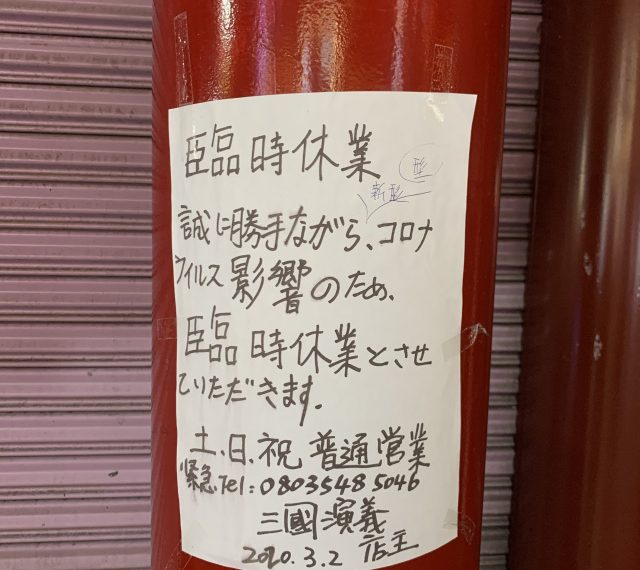 臨時休業
型
新形
誠に勝手ながら、コロナ
ウイルス影響のため、
臨時休業とさせ
ていただきます.
土.日.祝 普通営業
緊急.Tel:08035485046
三國演義
2020.3.2 店主